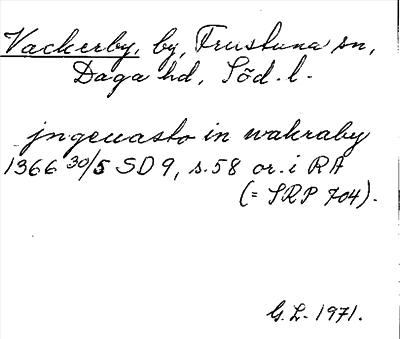 Vackerby, by, Frustuna sn,
Daga hd, Söd. l.
jngewasto in wakraby
1366 30/5 SD 9, s. 58 or. i RA
(= SRP 704).
G. L. 1971.